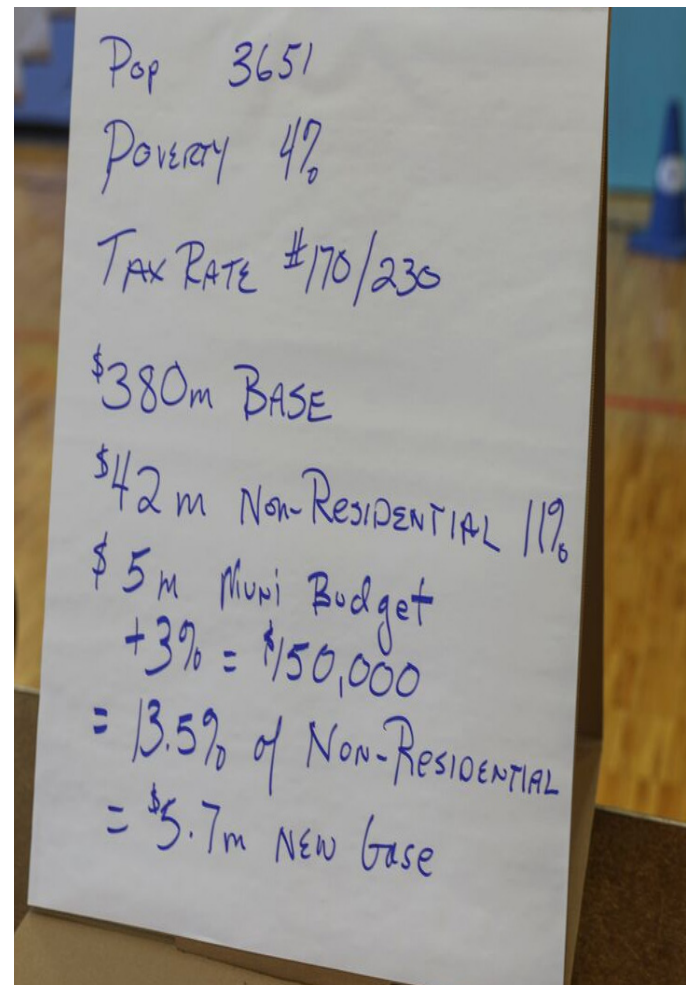 Pop 3651
POVERTY 4%
TAX RATE $170/230
$380m BASE
$42m NON-RESIDENTIAL 11%
$5m Muni Budget
+3% = $150,000
= 13.5% of NON-RESIDENTIAL
= $5.7m NEW base